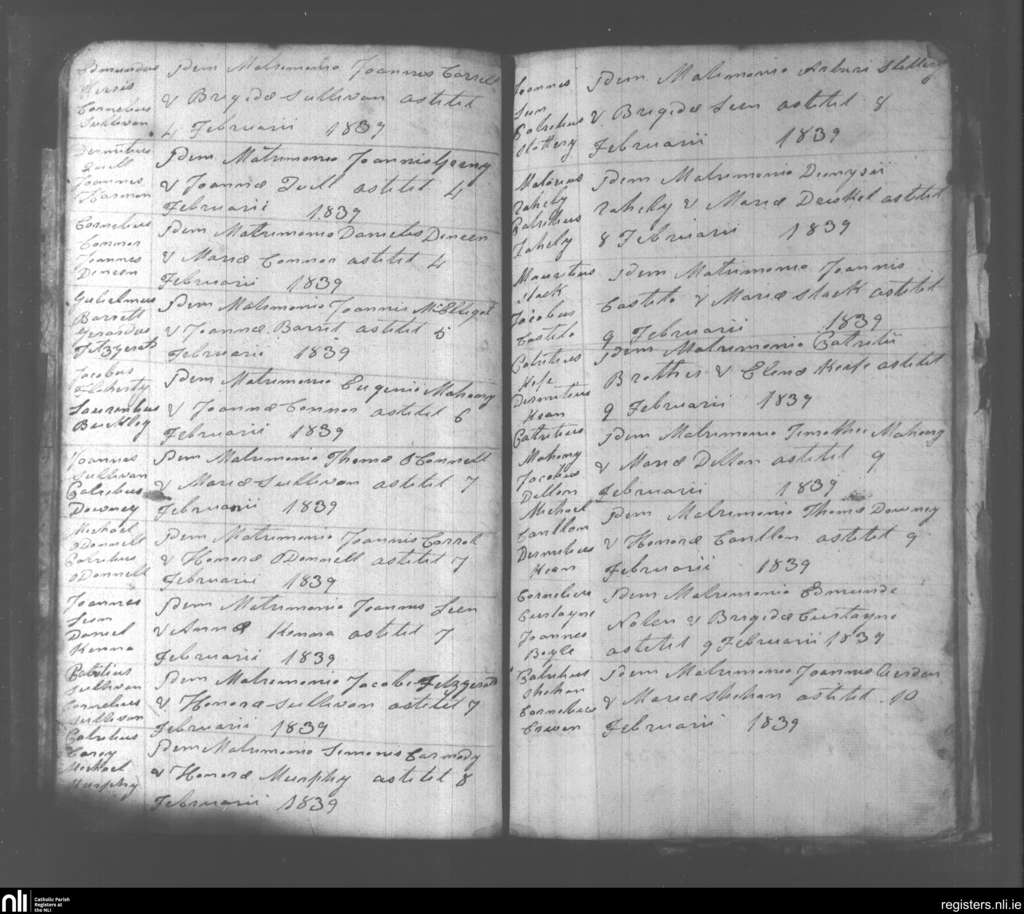 Edmundus
Cornelius
Sullivan
Idem Matrimonio Joannes Carroll
& Brigidæ Sullivan astitit
4 Februarii 1839
Dermitius
Quill
Joannes
Idem Matrimonio Joannis
& Joannæ Quill astitit 4
Februarii 1839
Cornelius
Connor
Joannes
Dineen
Idem Matrimonio Danielis Dineen
& Mariæ Connor astitit 4
Februarii 1839
Gulielmus
Barrett
Gerardus
Fitzgerald
Idem Matrimonio Joannis McElligot
& Joannæ Barrit astitit 5
Februarii 1839
Jacobus
Flaherty
Laurentius
Buckley
Idem Matrimonio Eugenio Mahony
& Joannæ Connor astitit 6
Februarii 1839
Joannes
Sullivan
Patritius
Downey
Idem Matrimonio Thomæ O'Connell
& Mariæ Sullivan astitit 7
Februarii 1839
Michael
O'Donnell
Cornelius
O'Donnell
Idem Matrimonio Joannis Carrol
& Honoræ O'Donnell astitit 7
Februarii 1839
Joannes
Leen
Daniel
Kenna
Idem Matrimonio Joannis Leen
& Annæ Kenna astitit 7
Februarii 1839
Patritius
Sullivan
Cornelius
Sullivan
Idem Matrimonio Jacobi Fitzgerald
& Honoræ Sullivan astitit 7
Februarii 1839
Patritius
Carey
Michael
Murphy
Idem Matrimonio Simonis Carmody
& Honoræ Murphy astitit 8
Februarii 1839
Joannes
Leen
Patritius
Slattery
Idem Matrimonio Arturi Slattery
& Brigidæ Leen astitit 8
Februarii 1839
Rahely
Patritius
Idem Matrimonio Dionysii
Rahely & Mariæ Driskel astitit
8 Februarii 1839
Mauritius
Slack
Jacobus
Costelo
Idem Matrimonio Joannis
Costelo & Mariæ Slack astitit
9 Februarii 1839
Patritius
Dermitius
Idem Matrimonio Patritii
Brother & Elenæ Keefe astitit
9 Februarii 1839
Patritius
Mahony
Jacobus
Dillon
Idem Matrimonio Timothei Mahony
& Mariæ Dillon astitit 9
Februarii 1839
Michael
Conllon
Dermitius
Idem Matrimonio Thomæ Downey
& Honoræ Conllon astitit 9
Februarii 1839
Cornelius
Custayne
Joannes
Boyle
Idem Matrimonio Edmundi
Nolen & Brigidæ Custayne
astitit 9 Februarii 1839
Patritius
Shehan
Cornelius
Idem Matrimonio Joannis
& Mariæ Shehan astitit 10
Februarii 1839
nli
Catholic Parish
Registers at
the NLI
registers.nli.ie